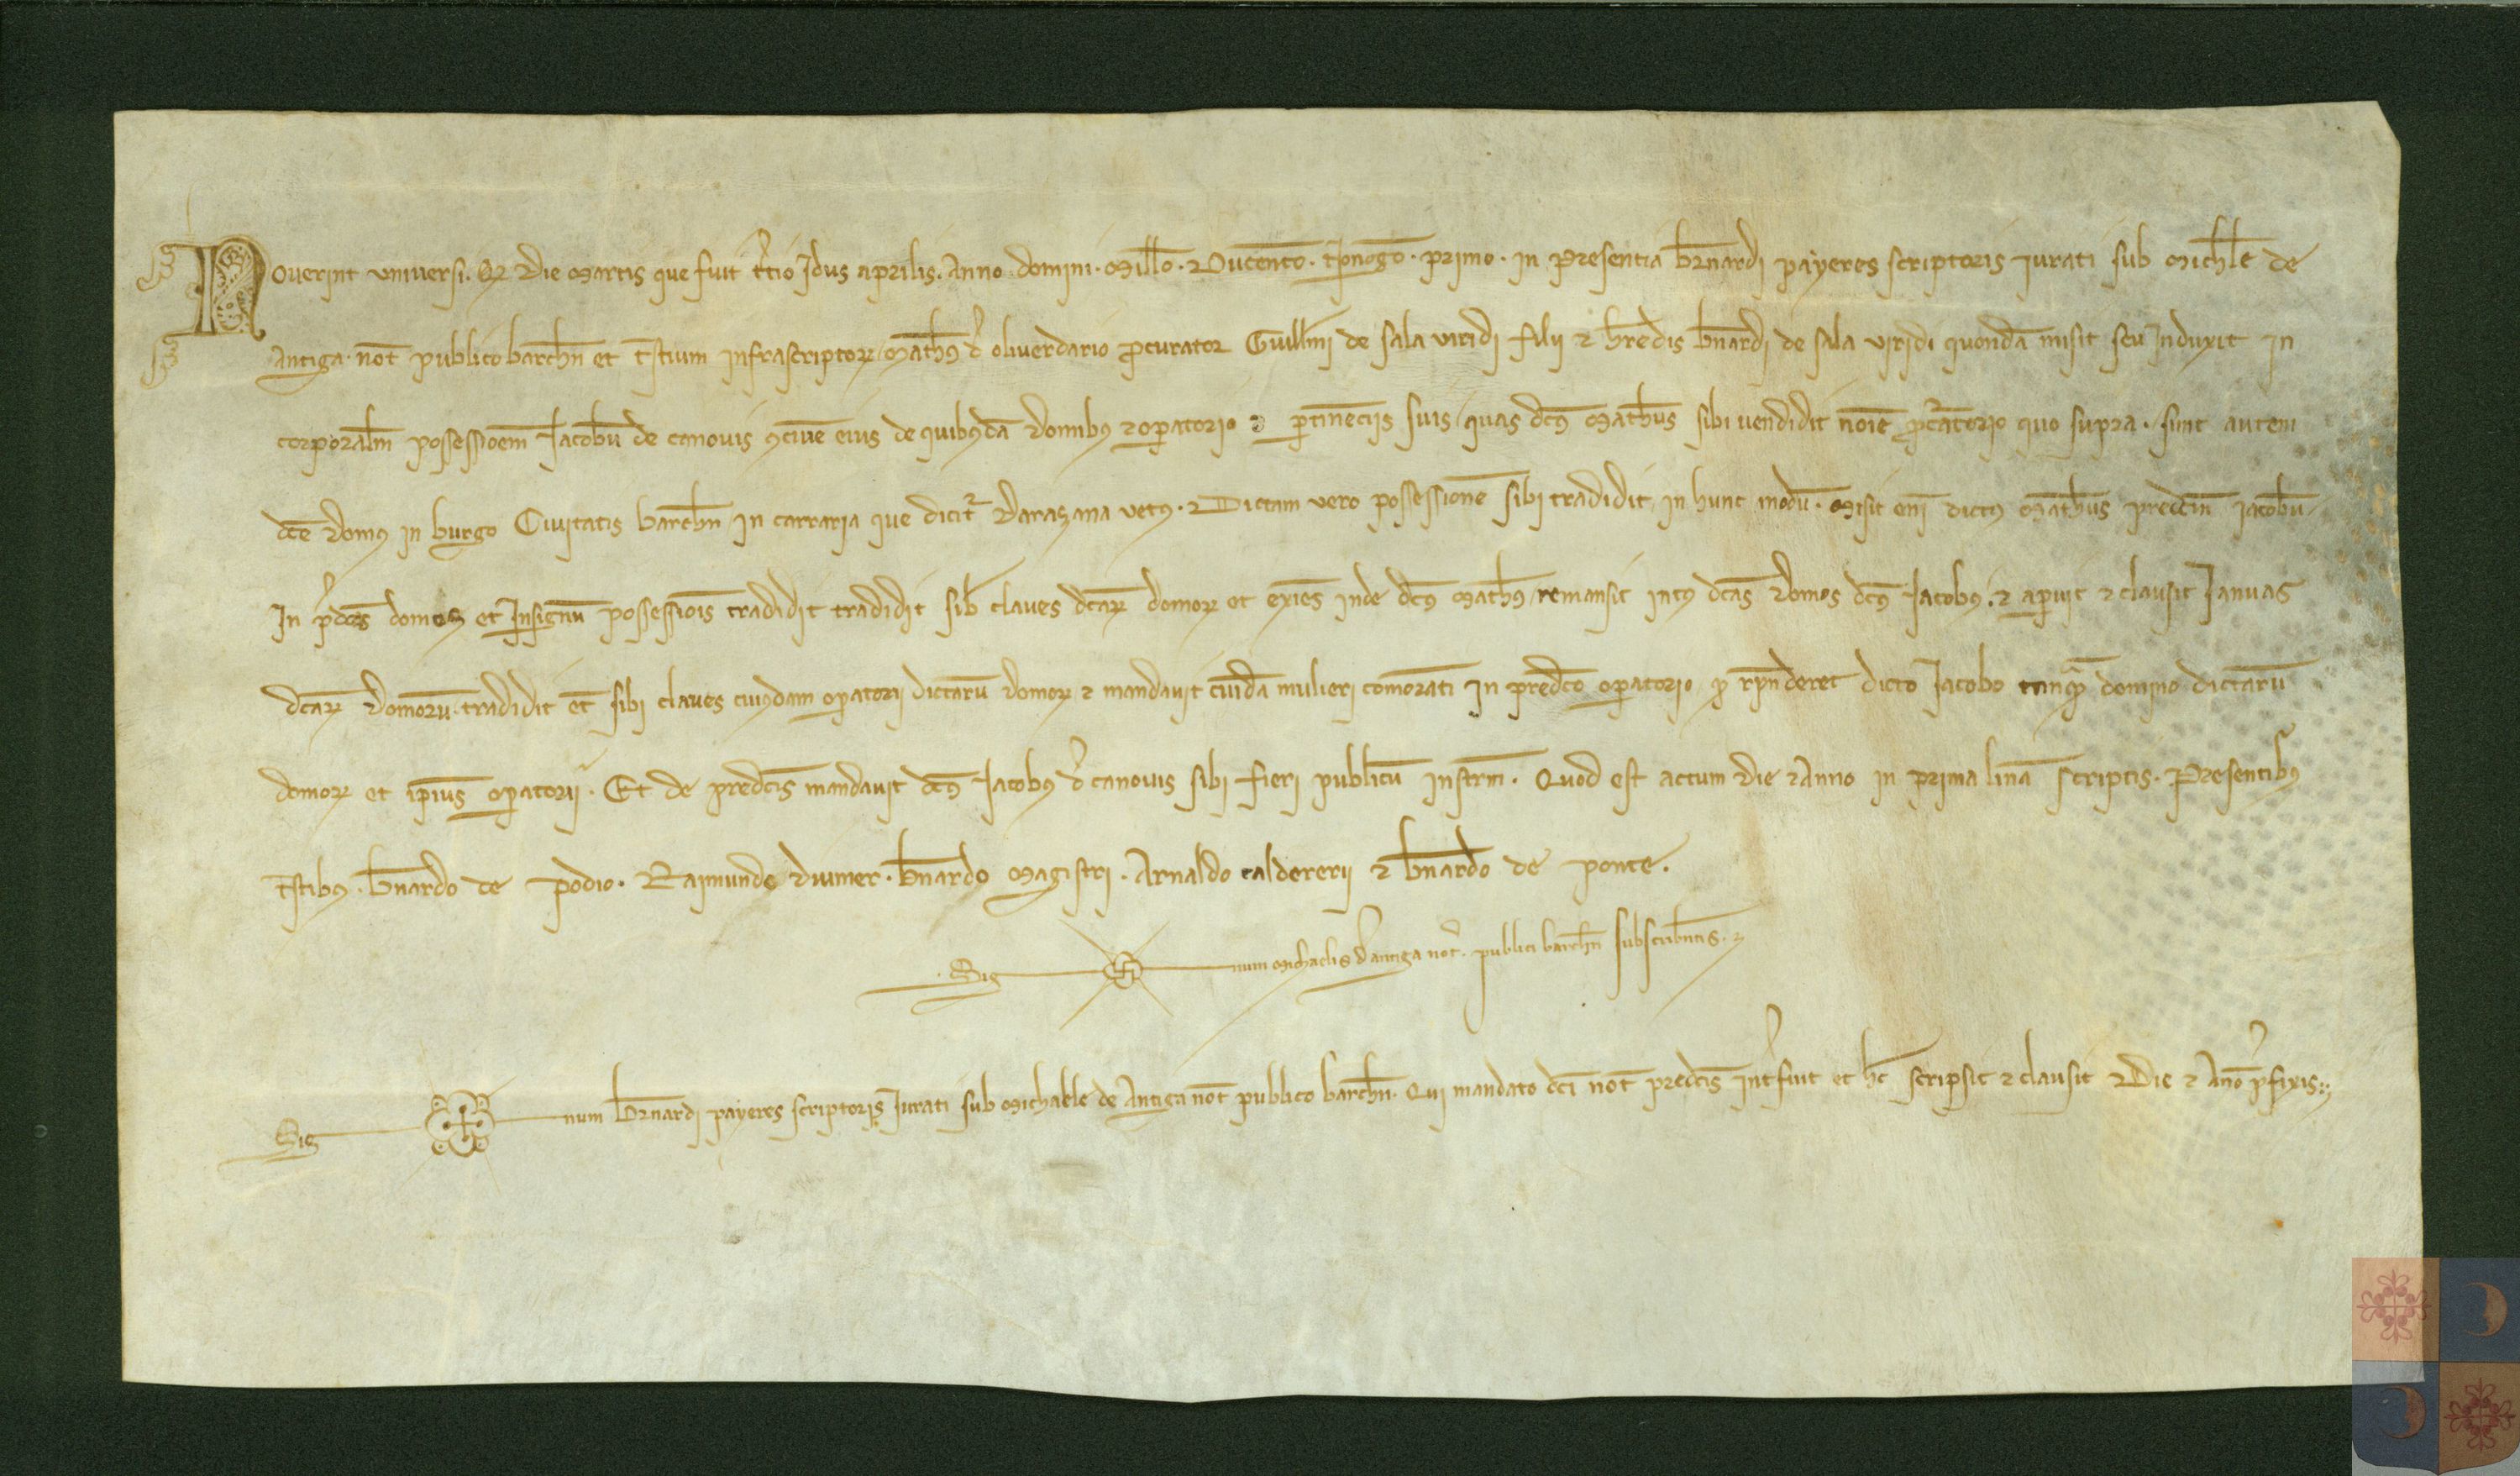 Noverint universi. qꝫ die martis que fuit t͛cio Idus aprilis. Anno domini. Mill̅o. Ducen̅to. nonog̅o. primo. in presentia br̅nardi payeres scriptoris iurati sub mich̅le de
Antiga. no̅t publico barch̅n et t̅stium infrascriptoꝝ matħꝰ d͛ oliverdario ꝓcurator Guill̅mi de sala viridi filii ⁊ h̅redis b̅nardi de sala viridi quonda̅ misit seu induxit in
corporal̅m possessioe̅m Jacobu̅ de canovis ꝯcive̅ eius de quibꝰda̅ domibꝰ ⁊ oꝑatorio ꝑtine̅ciis suis quas dc̅ꝰ math̅us sibi vendidit no̅ie ꝓcᷓtorio quo supra. sunt autem
dc̅e domꝰ in burgo Civitatis barch̅n in carraria que dicit᷑ darazana vetꝰ. Dictam vero possessione̅ sibi tradidit in hunc modu̅. Misit eni̅ dictꝰ math̅us predc̅m iacobu̅
In p͛dc̅as domos et insignu̅ possessio̅is tradidit tradidit sib̅ claves dc̅aꝝ domoꝝ et exie̅s inde dc̅ꝰ math̅ꝰ remansit intꝰ dc̅as domos dc̅ꝰ Jacobꝰ. ⁊ aꝑuit ⁊ clausit Januas
dc̅aꝝ domoru̅. tradidit et̅ sibi claves cuiꝰdam oꝑatorii dictaru̅ domoꝝ ⁊ mandavit cuida̅ mulieri comora̅ti in predc̅o oꝑatorio rn̅deret dicto Jacobo tanqᷓ domino dictaru̅
domoꝝ et ip̅ius oꝑatorii. Et de predc̅is mandavit dc̅ꝰ Jacobꝰ d͛ canovis sibi fieri publicu̅ instr̅m. Quod est actum die ⁊ Anno in prima lin̅a scriptis. Presentibꝰ
t̅stibꝰ. b̅nardo de podio. Raimundo dunier. b̅nardo magistri. Arnaldo caldererii ⁊ b̅nardo de ponte.
Sig num michaelis d͛ antiga not͛. publici barch̅n subscribe̅ntis.
Sig num br̅nardi payeres scriptoris Jurati sub michaele de Antiga no̅t publico barch̅n. Qui mandato dc̅i no̅t predc̅is int͛fuit et h̅c scripsit ⁊ clausit Die ⁊ An̅o p͛fixis